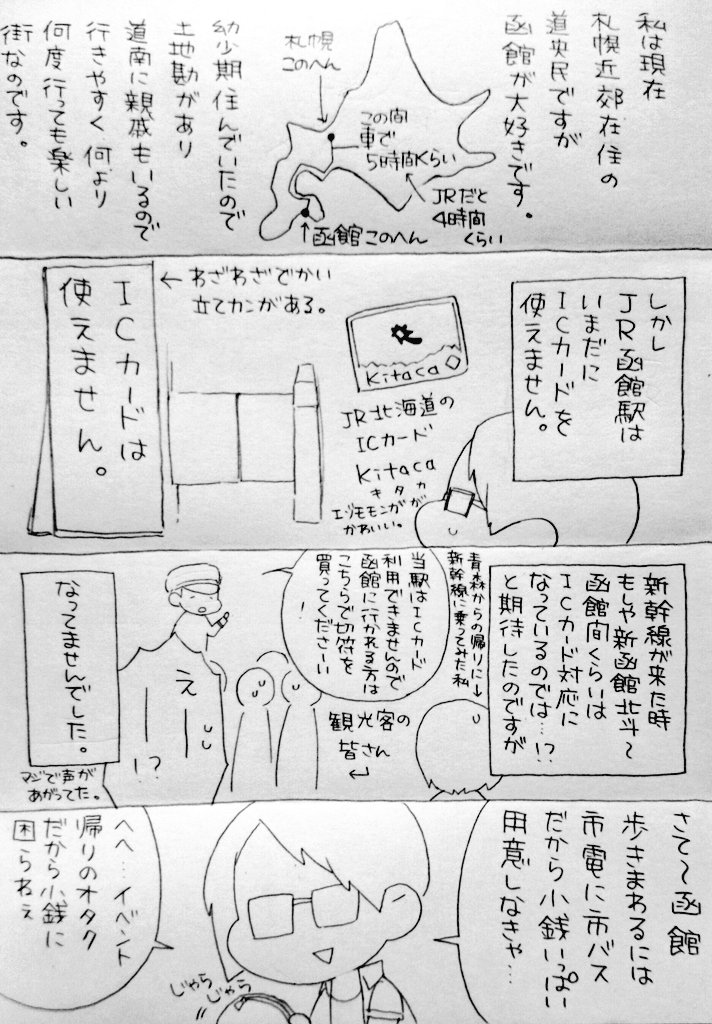 私は現在
札幌近郊在住の
道央民ですが
函館が大好きです。
札幌
このへん
この間
車で
5時間くらい
JRだと
4時間
くらい
函館このへん
幼少期住んでいたので
土地勘があり
道南に親戚もいるので
行きやすく何より
何度行っても楽しい
街なのです。
しかし
JR函館駅は
いまだに
ICカードを
使えません。
Kitaca
JR北海道の
ICカード
Kitaca
キタカ
エゾモモンガが
かわいい。
わざわざでかい
立てカンがある。
ICカードは
使えません。
新幹線が来た時
もしや新函館北斗〜
函館間くらいは
ICカード対応に
なっているのでは…!?
と期待したのですが
青森からの帰りに
新幹線に乗ってみた私
当駅はICカード
利用できませんので
函館に行かれる方は
こちらで切符を
買ってくださーい
!
観光客の
皆さん
え
!?
マジで声が
あがってた。
なってませんでした。
さて〜函館
歩きまわるには
市電に市バス
だから小銭いっぱい
用意しなきゃ…
へへ…イベント
帰りのオタク
だから小銭に
困らねえ
じゃら
じゃら